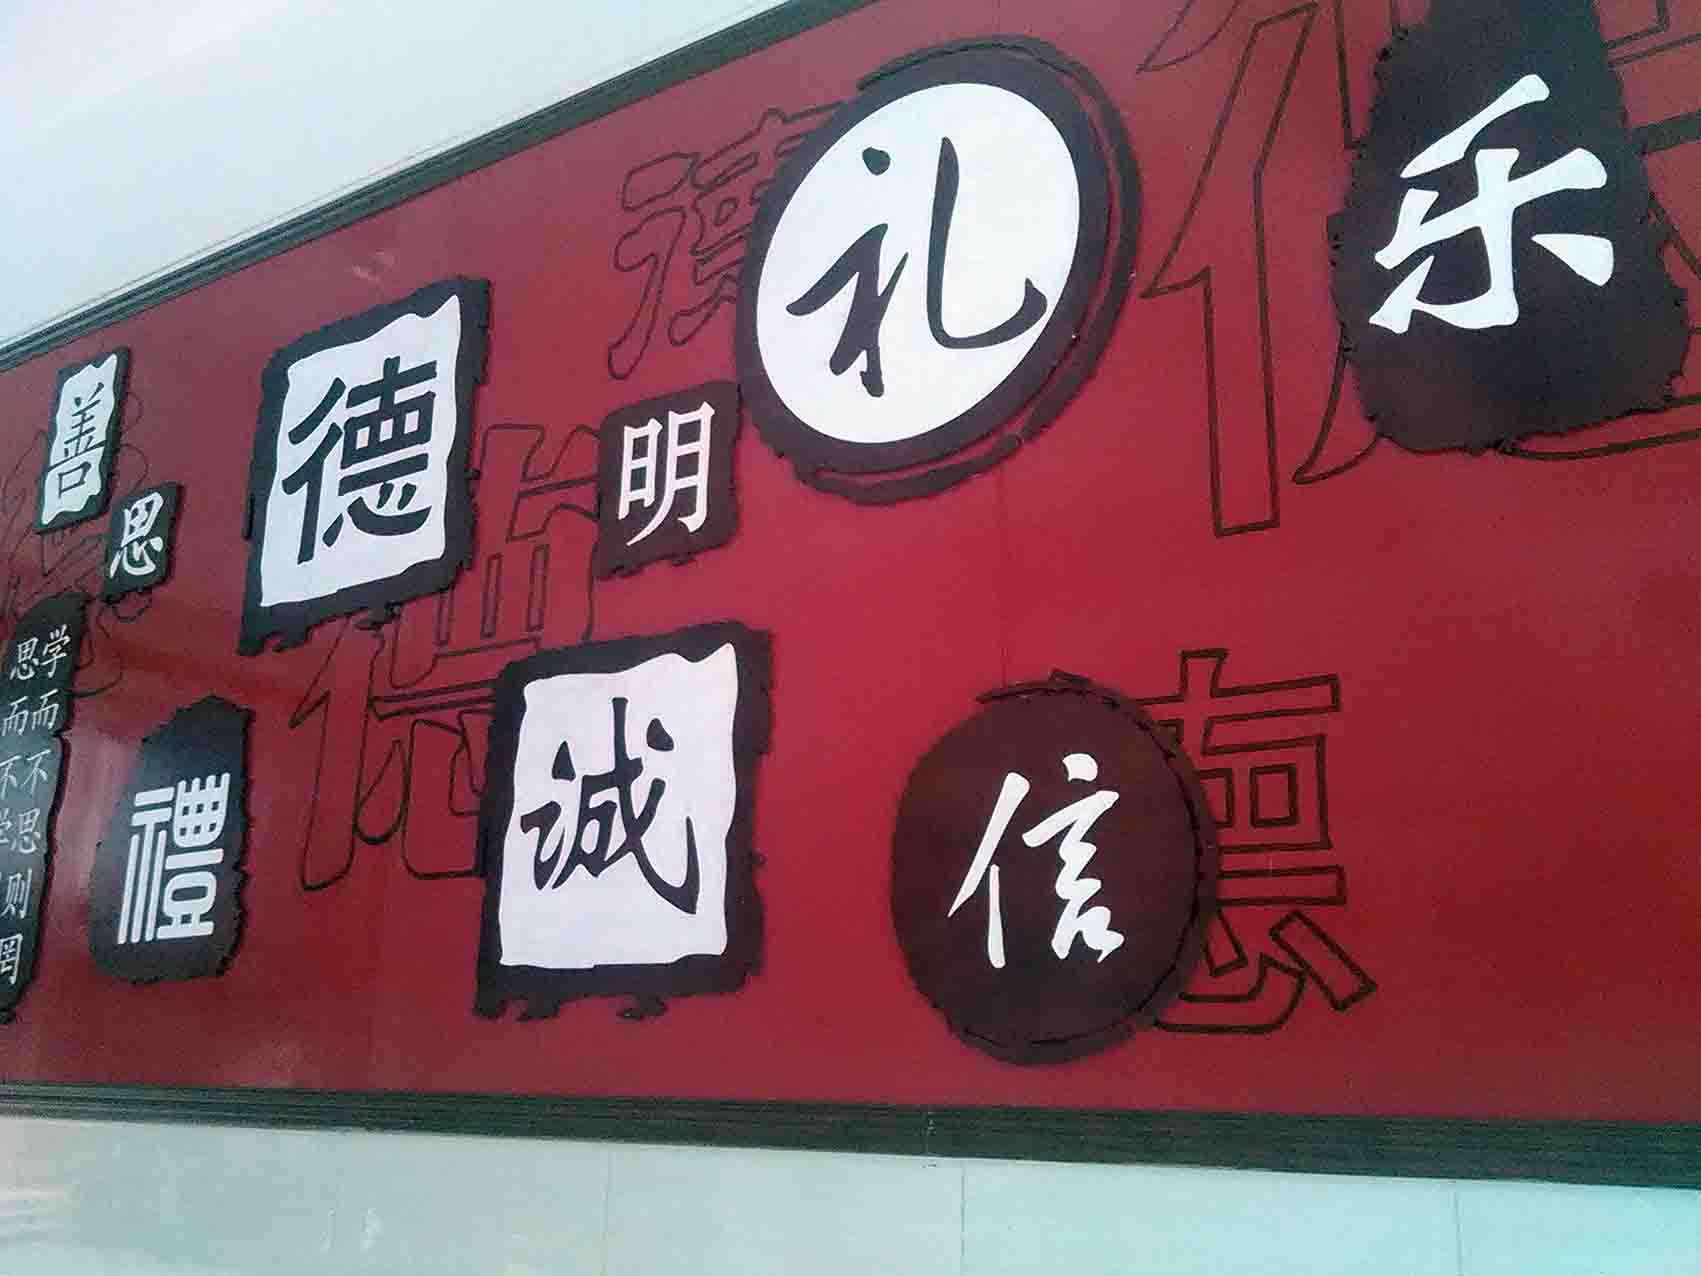 善
思
德
明
礼
乐
学而不思则罔
思而不学
禮
诚
信
德
德